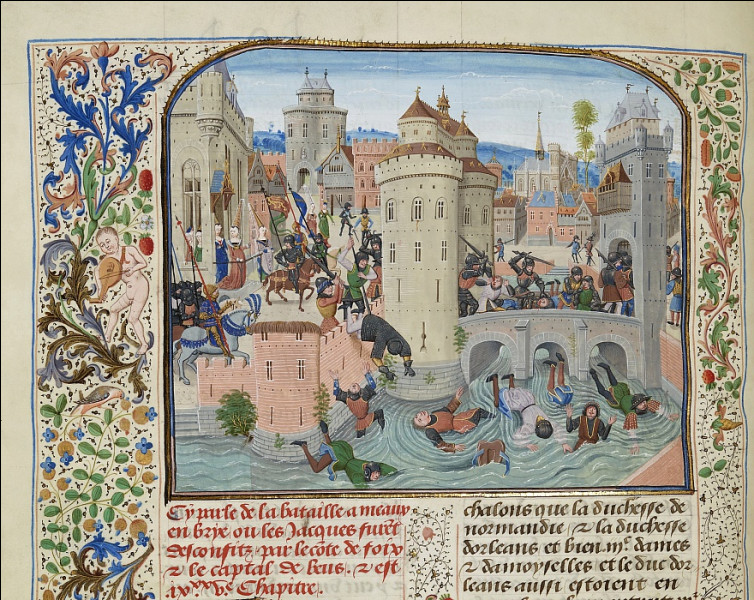 Cy parle de la bataille a meaux
en brye ou les Jacques furẽt
desconfitz par le cõte de foix
⁊ le captal de beus. ⁊ est
Chapitre.
chalons que la duchesse de
normandie ⁊ la duchesse
dorleans et bien mͥ. dames
⁊ damoyselles et le duc dor
leans aussi estoient en